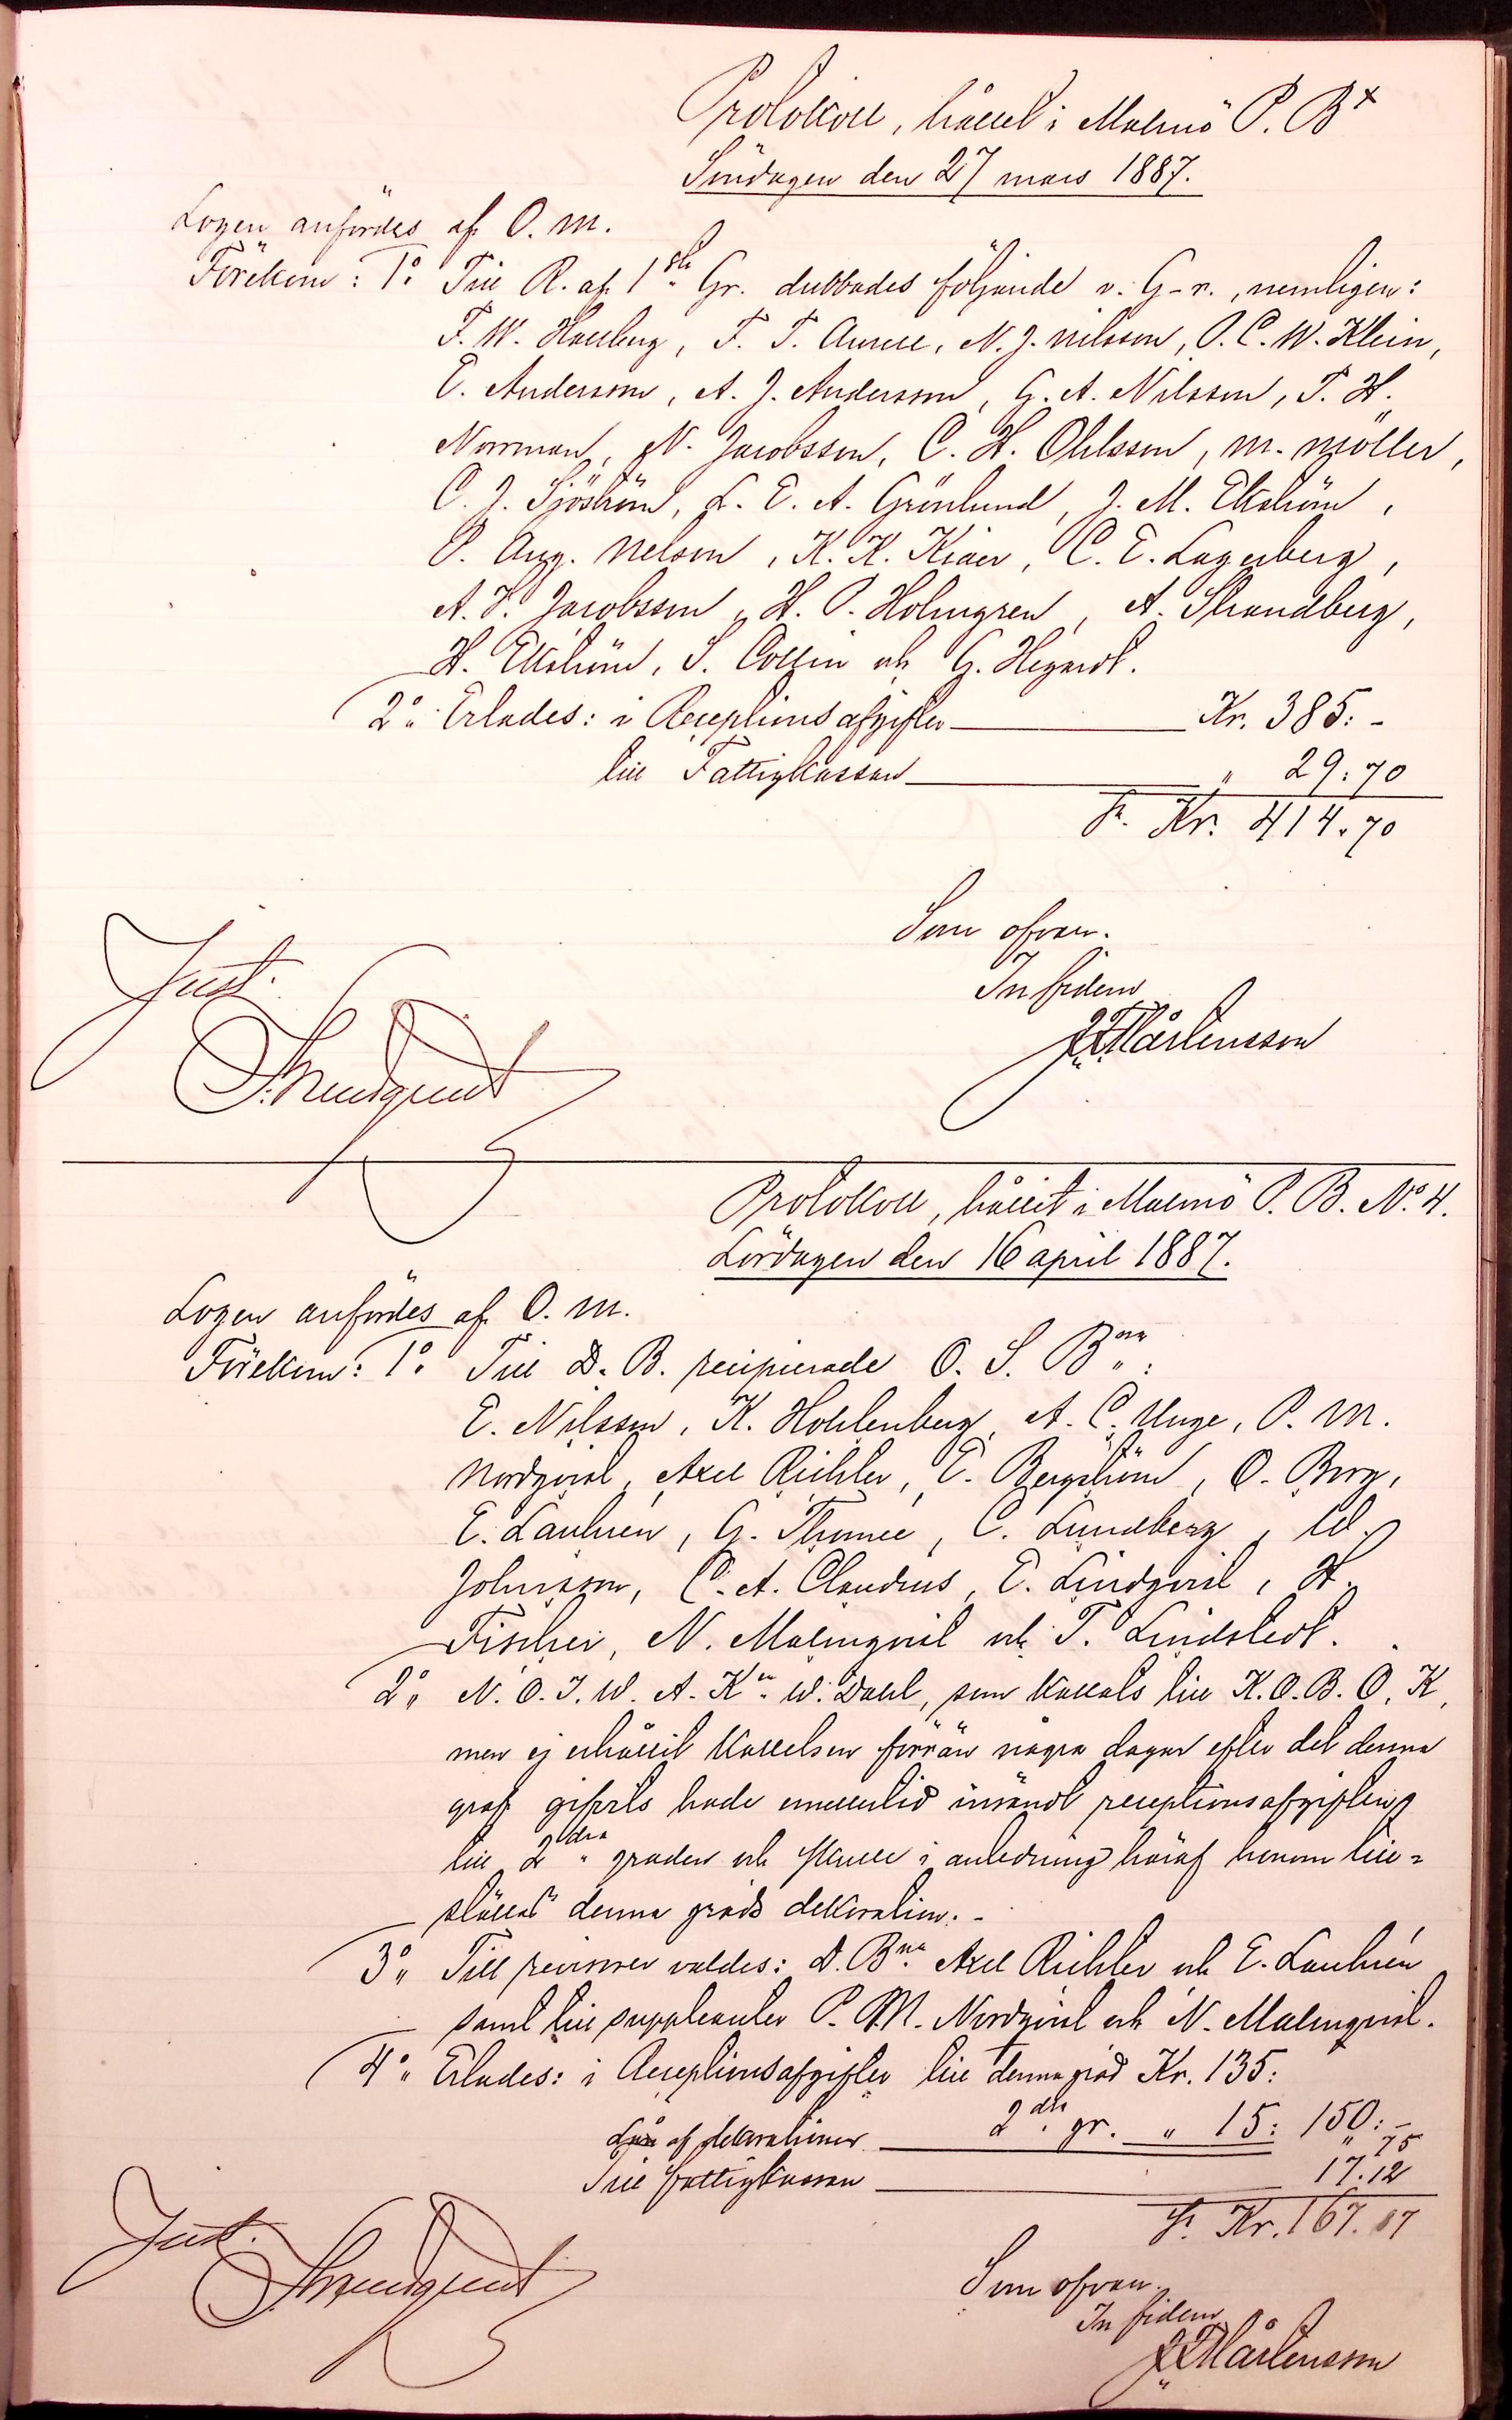 Protokoll, hållet i Malmö P. B+
Söndagen den 27 mars 1887.
Logen anfördes af O. M.
Förekom: 1o Till R. af 1sta Gr. dubbades följande v. G-r., nemligen:
F. W. Hallberg, F. T. Aurell, N. J. Nilsson, O. C. W. Klein,
E. Andersson, A. J. Andersson, G. A. Nilsson, T. H.
Norrman, N. Jacobsson, C. H. Ohlsson, M. Möller,
C. J. Sjöström, L. E. A. Grönlund, J. M. Ekström,
P. Aug. Nelson, K. K. Kiaer, C. E. Lagerberg,
A. F. Jacobsson, H. P. Holmgren, A. Strandberg,
H. Ekström, S. Collin och G. Hegardt.
2o Erlades: i Receptionsafgifter Kr. 385: -
till Fattigkassan " 29:70
Sr. Kr. 414.70
Som ofvan.
In fidem
Just.
J. F. Mårtensson
Protokoll, hållit i Malmö P. B. No. 4.
Lördagen den 16 april 1887.
Logen anfördes af O. M.
Förekom: 1o Till D. B. recipierade O. S. Bna:
E. Nilsson, K. Hohlenberg, A. C. Unge, P. M.
Nordqvist, Axel Richter, E. Bergström, O. Borg,
E. Laurén, G. Thomée, C. Lundberg, W.
Johnsson, C. A. Claudius, E. Lindqvist, H.
Fischer, N. Malmqvist och T. Lindstedt.
2o N. O. J. W. A. Kn. W. Dahl, som kallats till K. O. B. O. K,
men ej erhållit kallelsen förrän några dagar efter det denna
graf gifvits hade emellertid insändt receptionsafgiften
till 2dra graden och skulle i anledning häraf honom till=
ställas denna grads dekoration. -
3o Till revisorer valdes: D. Bna Axel Richter och E. Laurén
samt till suppleanter P. M. Nordqvist och N. Malmqvist.
4o Erlades: i Receptionsafgifter till denna grad Kr. 135:
2dra gr. " 15: 150: -
Lån af dekorationer " 75
Till fattigkassan 17.12
Sr. Kr. 167.87
Just.
Som ofvan.
In fidem
J. F. Mårtensson